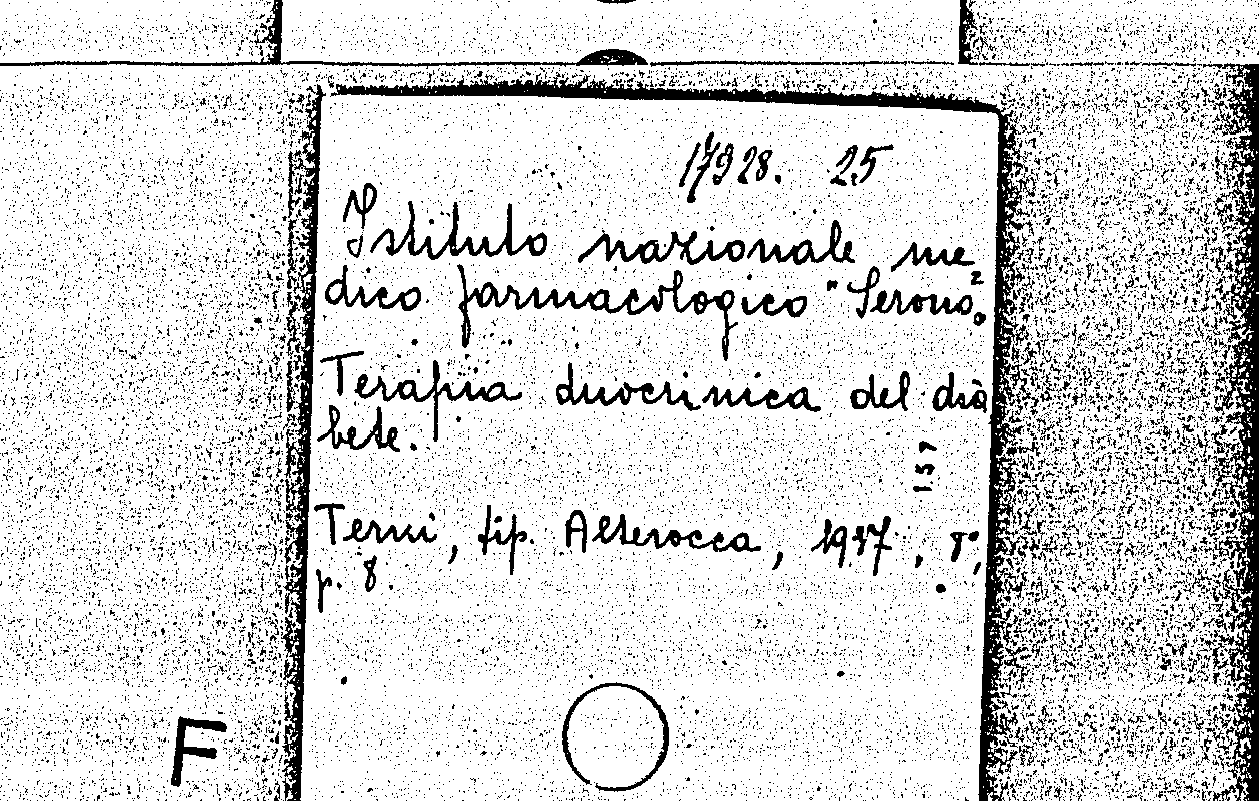 17928. 25
Istituto nazionale me
dico farmacologico "Serono".
Terapia duocrinica del dia
bete.
157
Terni, tip. Alterocca, 1937, 8°,
p. 8.
F